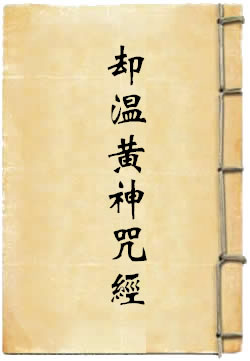 却温黄神咒經